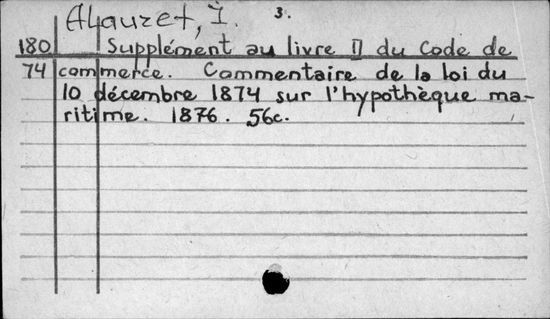 Alauzet, I. 3.
180 Supplément au livre II du Code de
74 commerce. Commentaire de la loi du
10 décembre 1874 sur l'hypothèque ma-
ritime. 1876. 56c.